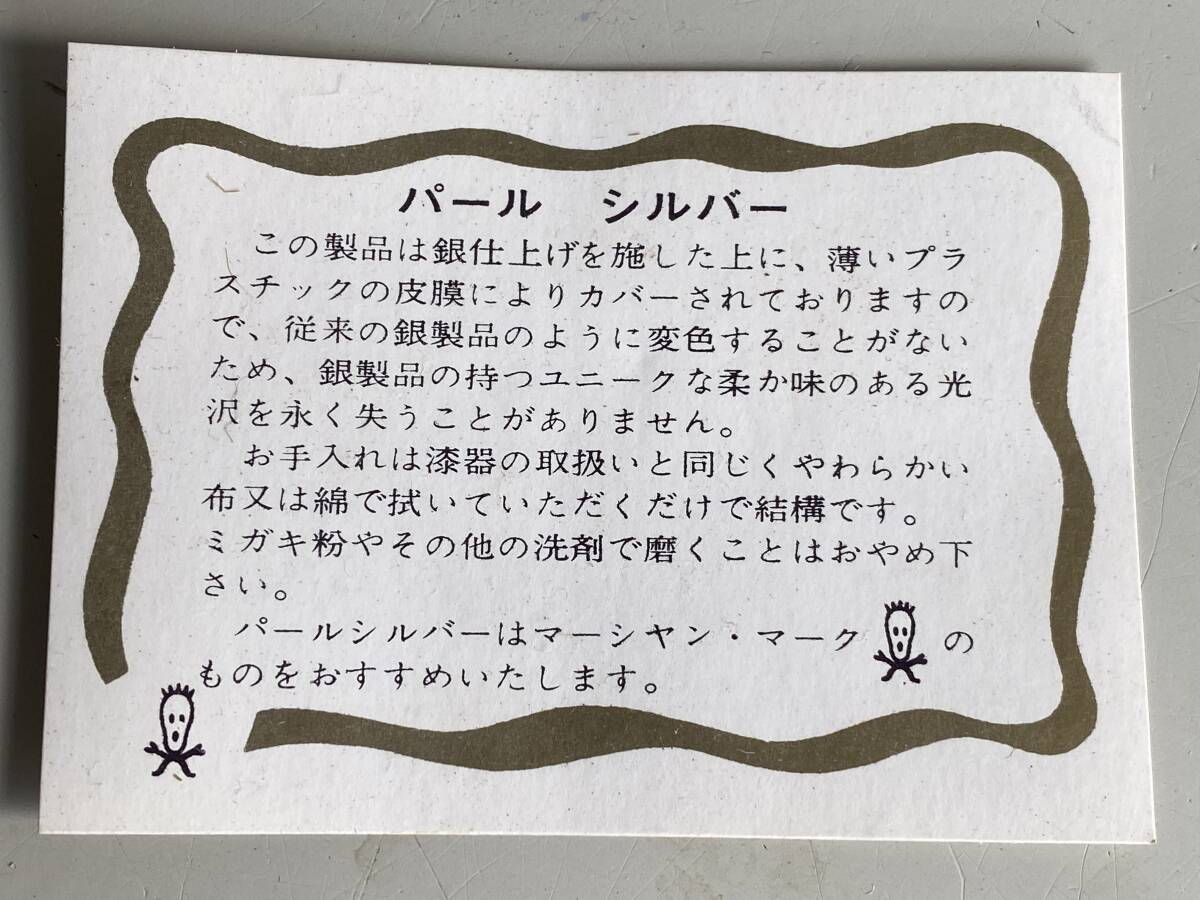 パール シルバー
この製品は銀仕上げを施した上に、薄いプラ
スチックの皮膜によりカバーされておりますの
で、従来の銀製品のように変色することがない
ため、銀製品の持つユニークな柔か味のある光
沢を永く失うことがありません。
お手入れは漆器の取扱いと同じくやわらかい
布又は綿で拭いていただくだけで結構です。
ミガキ粉やその他の洗剤で磨くことはおやめ下
さい。
パールシルバーはマーシヤン・マーク の
ものをおすすめいたします。